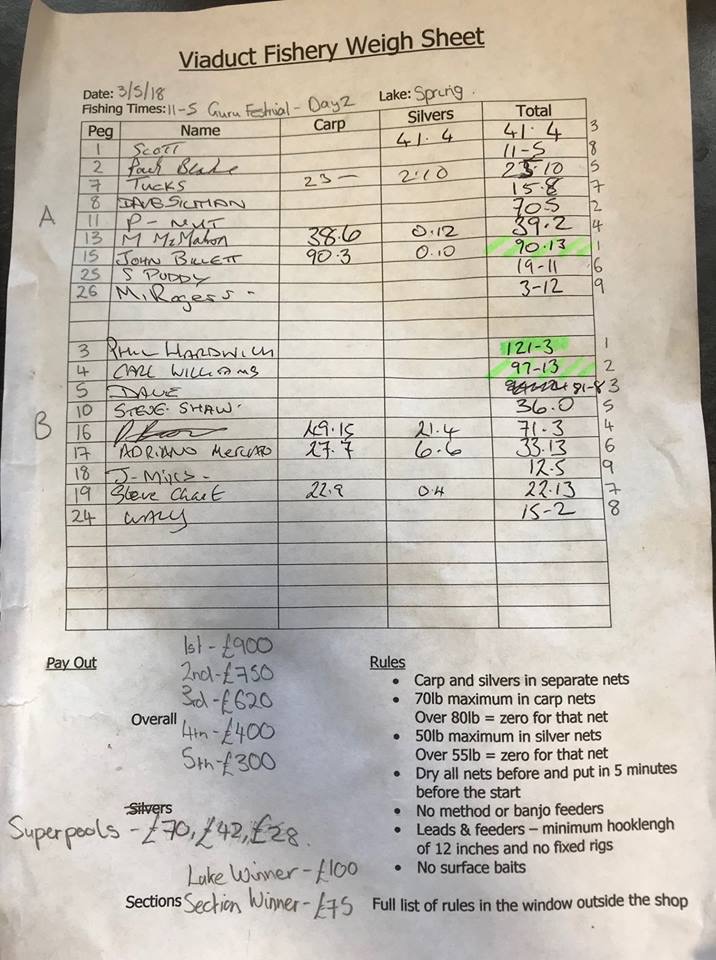 Viaduct Fishery Weigh Sheet
Date: 3/5/18 Lake: Spring.
Fishing Times: 11-5 Guru Festival - Day 2
Peg Name Carp Silvers Total
1 Scott 41.4 41.4 3
2 Paul Blake 11-5 8
7 Tucks 23- 2.10 25.10 5
8 DAVE SILMAN 15.8 7
A
11 P-NUT 70.5 2
13 M McMahon 38.6 0.12 39.2 4
15 JOHN BILLETT 90.3 0.10 90.13 1
25 S PUDDY 19-11 6
26 M. Rogers - 3-12 9
3 PHIL HARDWICK 121-3 1
4 CARL WILLIAMS 97-13 2
5 DAVE 81-8 3
10 STEVE SHAW. 36.0 5
B
16 49.15 21.4 71.3 4
17 ADRIANO MERCATO 27.7 6.6 33.13 6
18 J- 12.5 9
19 Steve Chart 22.9 0.4 22.13 7
24 WALLY 15-2 8
Pay Out
1st - £900
2nd - £750
3rd - £620
Overall
4th - £400
5th - £300
Silvers
Superpools - £70, £42, £28.
Lake Winner - £100
Sections Section Winner - £75
Rules
• Carp and silvers in separate nets
• 70lb maximum in carp nets
Over 80lb = zero for that net
• 50lb maximum in silver nets
Over 55lb = zero for that net
• Dry all nets before and put in 5 minutes
before the start
• No method or banjo feeders
• Leads & feeders – minimum hooklengh
of 12 inches and no fixed rigs
• No surface baits
Full list of rules in the window outside the shop